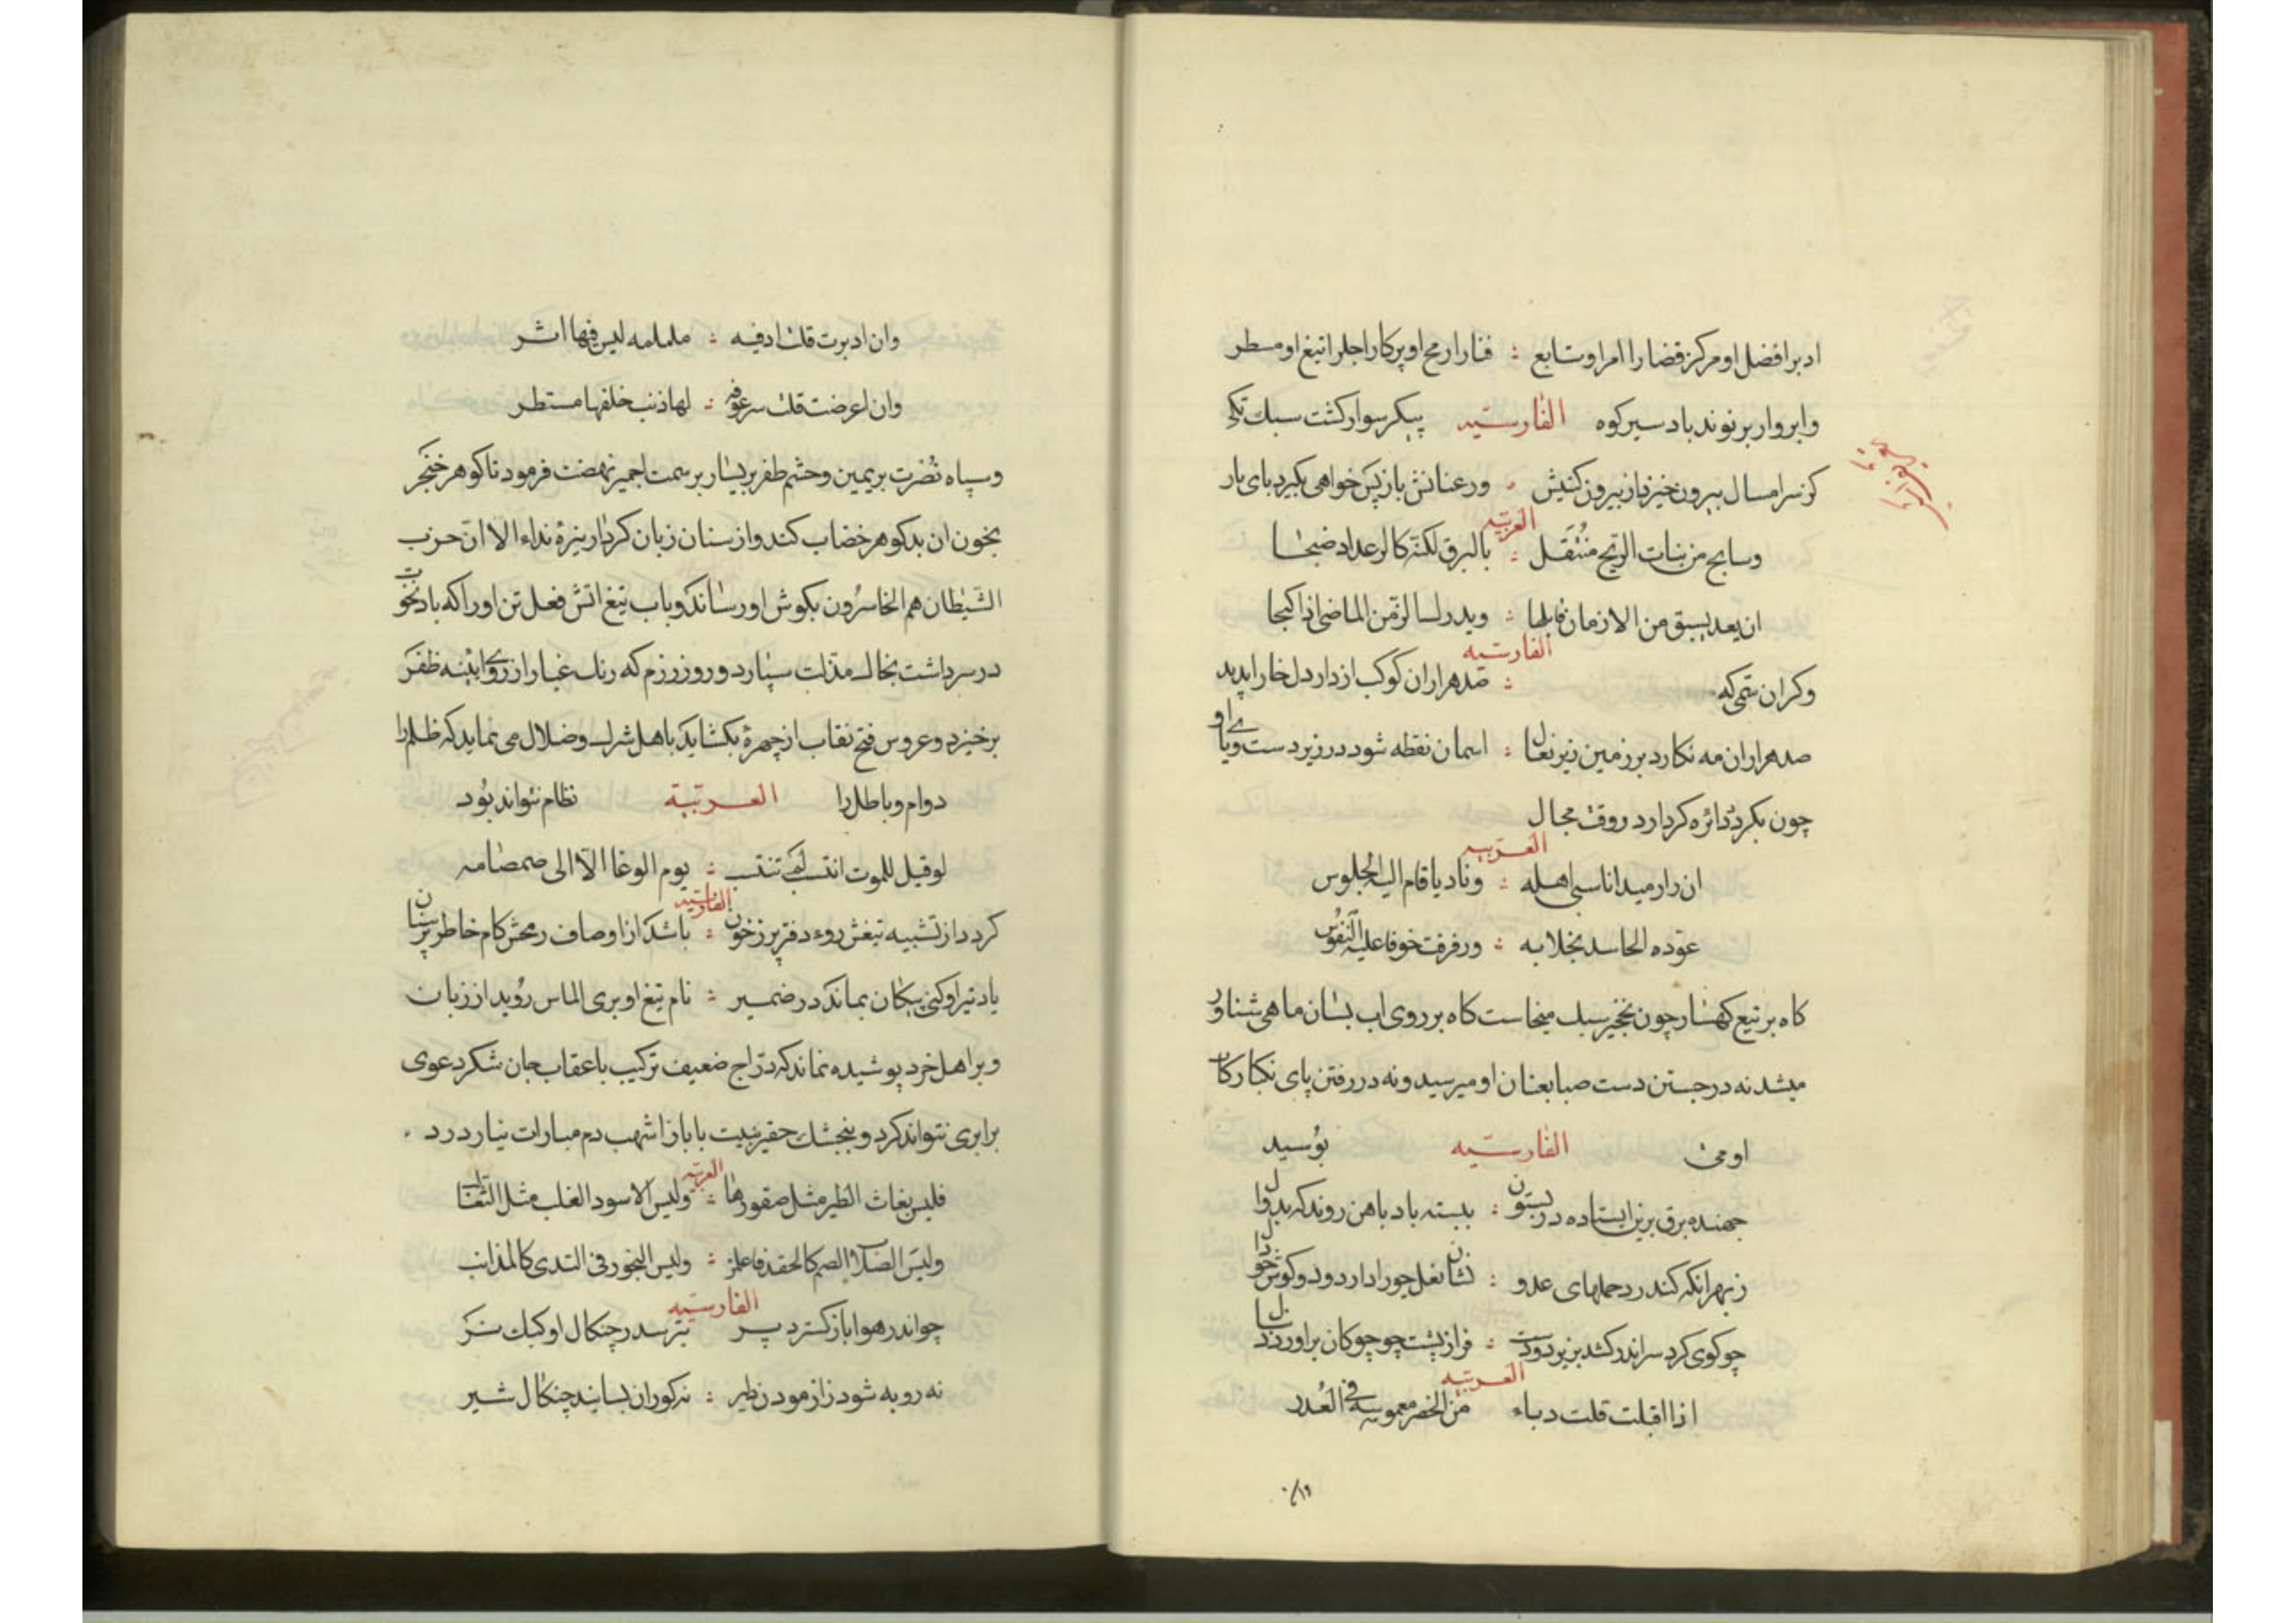 ادبرا فضل او مرکز قضا را امر او تابع : فنا را رمح او پرکار اجل را تیغ او مسطر
وابروار بر نوند باد سیر کوه الفارسیه پیکر سوار کشت سبك تکی
کز سرامسال بیرون خیز باز بیرون کنیش ورعنانش بازپس خواهی بکیرد بای بار
العربیه
وسابح من بنات الریح منتقل : بالبرق لکنه کالرعد اد ضبحا
ان یعد یسبق من الازمان قابلها : ویدرك الزمن الماضی اذا کبحا
الفارسیه
وکران سمی که : صد هزاران کوکب از دار دل خارا پدید
صد هزاران مه نکارد بر زمین زیر نعال : اسمان نقطه شود در زیر دست و پای او
چون بکرد دائره کردارد روقت مجال
العربیه
ان دار میدانا سبی اهله : ونادیا قام الیه الجلوس
عوده الحاسد بخلا به : ورفرفت خوفا علیه النفوس
کاه بر تیغ کهسار چون نخجیر سبك میخاست کاه بر روی اب بسان ماهی شناور
میشد نه در جستن دست صبا بعنان او میرسید و نه در رفتن پای نکبا رکاب
اومی الفارسیه بوسید
جهنده برق برین ایستاده در بستون : ببسته باد باهن روند که بدوال
زبهر انکه کند رد حملهای عدو : نشان نعل چو را دارد و دو کوش خو دال
چو کوی کرد سر اندر کشد بزیر دو دست : فراز پشت چو چوکان براورد دنبال
العربیه
اذا اقبلت قلت دباء من الخضر مغموسة فی الغدر
وان ادبرت قلت اد فیه : ململمه لیس فیها اثر
وان اعرضت قلت سرعوفه : لها ذنب خلفها مستطر
وسپاه نصرت بر یمین وحشم ظفر بر یسار بر سمت اجمیر نهضت فرمود تا کوهر خنجر
بخون ان بدکوهر خضاب کند واز سنان زبان کردار نیزه نداء الا ان حزب
الشیطان هم الخاسرون بکوش او رساند وباب تیغ اتش فعل تن او را که باد نخوت
در سر داشت بخاك مذلت سپارد و روز رزم که رنك غبار از روی اینه ظفر
برخیزد و عروس فتح نقاب از چهره بکشاید باهل شرك وضلال می نماید که ظلم را
دوام وباطل را العربیة نظام نتواند بود
لو قیل للموت انتسب لم تنتسب : یوم الوغا الا الی صمصامه
الفارسیه
کردد از تشبیه تیغش روء دفتر پر زخون : باشد از اوصاف رمحش کام خاطر پر سنان
یاد تیر او کنی پیکان بماند در ضمیر : نام تیغ او بری الماس روید از زبان
وبر اهل خرد پوشیده نماند که دراج ضعیف ترکیب با عقاب جان شکر دعوی
برابری نتواند کرد و بنجشك حقیر بنیت با باز اشهب دم مبارات نیارد زد
العربیه
فلیس بغاث الطیر مثل صقورها : ولیس الاسود الغلب مثل الثعالب
ولیس الصلا الصم کالحقد فاعلم : ولیس البحور فی الندی کالمذانب
الفارسیه
چو اندر هوا باز کسترد پر بترسد ز چنکال او کبك نر
نه روبه شود ز ازمودن دلیر : نه کوران بسایند چنکال شیر